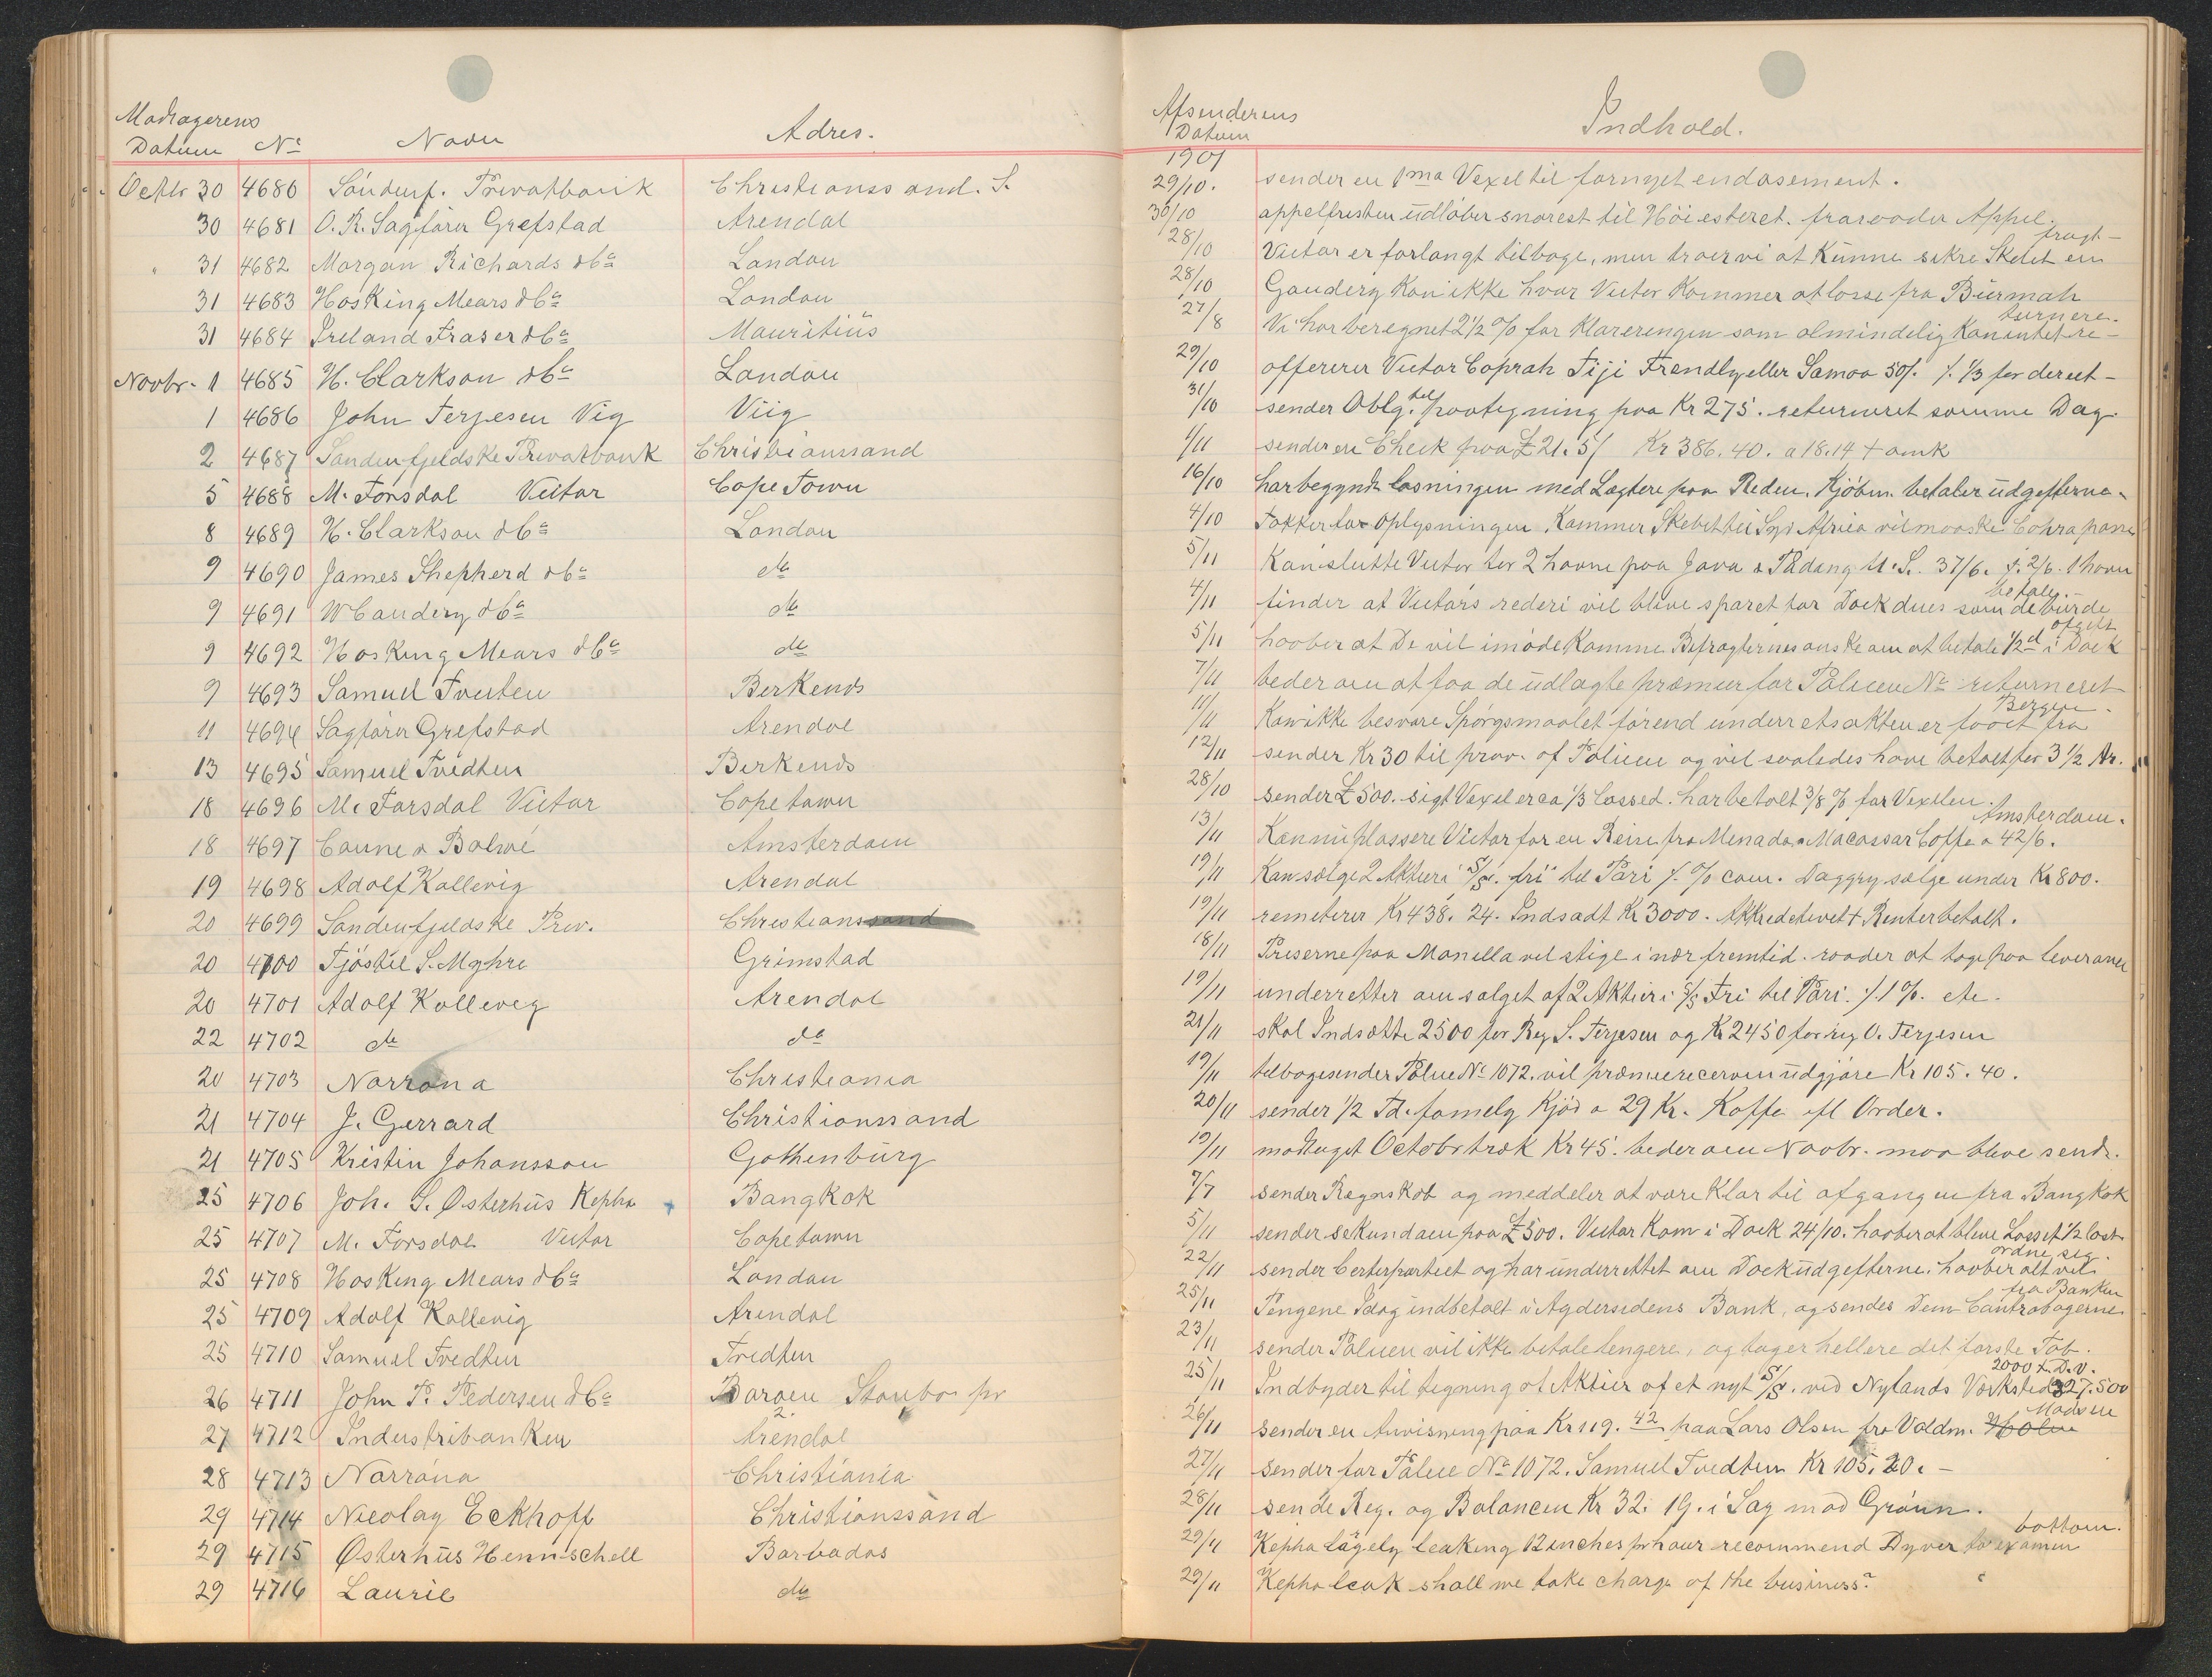 Modtagerens
Datum No Navn Adres.
Octbr 30 4680 Söndenf. Privatbank Christianssand. S.
30 4681 O. R. Sagförer Grefstad Arendal
" 31 4682 Morgan Richards & Co London
31 4683 Hosking Mears & Co London
31 4684 Ireland Fraser & Co Mauritius
Novbr. 1 4685 H. Clarkson & Co London
1 4686 John Terjesen Vig Viig
2 4687 Sondenfjeldske Privatbank Christianssand
5 4688 M. Forsdal Victor Cape Town
8 4689 H. Clarkson & Co London
9 4690 James Shepherd & Co do
9 4691 W Gandery & Co do
9 4692 Hosking Mears & Co do
9 4693 Samuel Tveten Birkends
11 4694 Sagförer Grefstad Arendal
13 4695 Samuel Tvedten Birkends
18 4696 M. Forsdal Victor Cape town
18 4697 Canne & Balwé Amsterdam
19 4698 Adolf Kallevig Arendal
20 4699 Sondenfjeldske Priv. Christianssand
20 4700 Tjöstel S. Myhre Grimstad
20 4701 Adolf Kallevig Arendal
22 4702 do do
20 4703 Norröna Christiania
21 4704 J. Gerrard Christianssand
21 4705 Kristin Johansson Gothenburg
25 4706 Joh. S. Østerhus Kepha Bangkok
25 4707 M. Forsdal Victor Cape town
25 4708 Hosking Mears & Co London
25 4709 Adolf Kallevig Arendal
25 4710 Samuel Tvedten Tvedten
26 4711 John P. Pedersen & Co Baroen Staubo pr
27 4712 Industribanken Arendal
28 4713 Norröna Christiania
29 4714 Nicolay Eckhoff Christianssand
29 4715 Østerhus Hennschell Barbados
29 4716 Laurie do
Afsenderens
Datum Indhold.
1901
29/10. sender en 1ma Vexel til fornyet endosement.
30/10 appelfristen udlöber snarest til Höiesteret. fraraader Appel.
fragt-
28/10 Victor er forlangt tilbage, men troer vi at Kunne sikre Skibet en
28/10 Gandery Kan ikke hvor Victor Kommer at losse fra Burmah
turnere.
27/8 Vi har beregnet 2 1/2 % for Klareringen som almindelig Kan intet re-
29/10 offererer Victor Coprah Fiji Frendly eller Samoa 50/. /. 1/3 for direct-
31/10 sender Oblg. til paategning paa Kr 275. returneret samme Dag.
1/11 sender en Check paa £ 21.5/ Kr 386.40. a 18.14 + omk
16/10 har begyndt losningen med Lægtere paa Reden. Kjöbm. betaler udgifterne.
4/10 Takker for Oplysningen. Kommer Skebet til Syd Africa vil maaske Cohra passe
5/11 Kan slutte Victor for 2 havne paa Java & Padang U. S. 37/6. /. 2/6. 1 havn
betale.
4/11 finder at Victors rederi vil blive sparet for Dock dues som de burde
afgift
5/11 haaber at De vil imödekomme Befragternes önske om at betale 1/2 d i Dock
7/11 beder om at faa de udlagte præmier for Policen No returneret
Bergen.
11/11 Kan ikke besvare Spörgsmaalet förend underretsakten er faaet fra
12/11 sender Kr 30 til prov. af Policen og vil saaledes have betalt for 3 1/2 Ar.
28/10 sender £ 500. sigt Vexel er ca 1/3 Lossed. har betalt 3/8 % for Vexelen.
Amsterdam.
13/11 Kan nu plassere Victor for en Reise fra Menado & Macassar Coffe a 42/6.
19/11 Kan sælge 2 Aktier i S/S. fri til Pari /. % com. Daggry sælge under Kr 800.
19/11 remeterer Kr 438.24. Indsadt Kr 3000. Akkreditivet + Renter betalt.
18/11 Priserne paa Manilla vil stige i nær fremtid. raader at tage paa leverance
19/11 underretter om salget af 2 Aktier i S/S Fri til Pari /. 1 %. etc.
21/11 skal Indsætte 2500 for Reg S. Terjesen og Kr 2450 for reg O. Terjesen
19/11 tilbagesender Police No 1072. vil præmiereserven udgjöre Kr 105.40.
20/11 sender 1/2 Td. family Kjöd a 29 Kr. Kaffe efl Order.
19/11 modtaget Octobr træk Kr 45. beder om Novbr. maa blive sendt.
7/7 sender Regnskab og meddeler at være Klar til afgangen fra Bangkok
5/11 sender sekundaen paa £ 500. Victor Kom i Dock 24/10. haaber at blive Losset 1/2 last
ordne sig.
22/11 sender Certepartiet og har underrettet om Dockudgifterne. haaber alt vil
fra Banken
25/11 Pengene Idag indbetalt i Agdersidens Bank, og sendes Dem Contrabögerne
23/11 sender Policen vil ikke betale lengere, og tager hellere det förste Tab.
2000 t. D.V.
25/11 Indbyder til tegning af Aktier af et nyt S/S. ved Nylands Værksted 327.500
Madsen
26/11 sender en Anvisning paa Kr 119.42 paa Lars Olsen fra Valdm. Holm
27/11 sender for Police No 1072. Samuel Tvedten Kr 105.20.-
28/11 sende Reg. og Balancen Kr 32.19. i Sag mod Grönn.
bottom.
29/11 Kepha lagely leaking 12 inches pr hour recommend Dyver to examin
29/11 Kepha leak shall we take charge of the business?